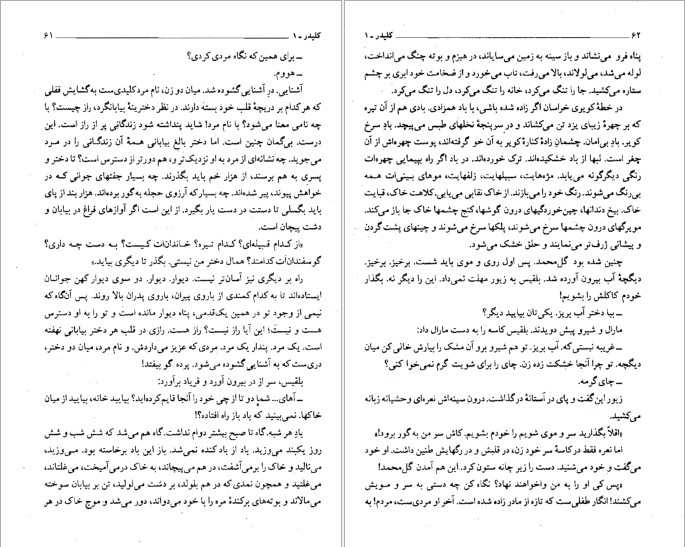 کلیدر ـ ۱ ۶۱
ـ برای همین که نگاه مردی کردی؟
ـ هووم.
آشنایی. درِ آشنایی گشوده شد. میان دو زن، نام مرد کلیدی‌ست به گشایش قفلی
که هرکدام بر دریچهٔ قلب خود بسته دارند. در نظر دخترینهٔ بیابانگرد، راز چیست؟ با
چه نامی معنا می‌شود؟ با نام مرد! شاید پنداشته شود زندگانی پر از راز است. این
درست. بی‌گمان چنین است. اما دختر بالغ بیابانی همهٔ آن زندگانی را در مرد
می‌جوید. چه نشانه‌ای از مرد به او نزدیک‌تر و، هم دورتر از دسترس است؟ تا دختر و
پسری به هم برسند، از هزار خم باید بگذرند. چه بسیار جفتهای جوانی که در
خواهش پیوند، پیر شده‌اند. چه بسیار که آرزوی حجله به گور برده‌اند. هزار بند از پای
باید بگسلی تا دستت در دست یار بگیرد. از این است اگر آوازهای فراغ در بیابان و
دشت پیچان است.
«از کدام قبیله‌ای؟ کدام تیره؟ خاندان‌ات کیست؟ به دست چه داری؟
گوسفندان‌ات کدامند؟ همال دختر من نیستی. بگذر تا دیگری بیاید.»
راه بر دیگری نیز آسان‌تر نیست. دیوار. دیوار. دو سوی دیوار کهن جوانان
ایستاده‌اند تا به کدام کمندی از باروی پیران، باروی پدران بالا روند. پس آن‌گاه که
نیمی از وجود تو در همین یک‌قدمی، پناه دیوار مانده است و تو را به او دسترس
هست و نیست؛ این آیا راز نیست؟ راز هست. رازی در قلب هر دختر بیابانی نهفته
است. یک مرد. پندار یک مرد. مردی که عزیز می‌داردش. و نام مرد، میان دو دختر،
دری‌ست که به آشنایی گشوده می‌شود. پوده گو بیفتد!
بلقیس، سر از در بیرون آورد و فریاد برآورد:
ـ آهای... شما دو تا از چی خود را آنجا قایم کرده‌اید؟ بیایید خانه، بیایید از میان
خاکها. نمی‌بینید که باد باز راه افتاده؟!
یاد هر شبه. گاه تا صبح بیشتر دوام نداشت. گاه هم می‌شد که شش شب و شش
روز یکبند می‌وزید. یاد از یاد کنده نمی‌شد. باز این باد برخاسته بود. می‌وزید،
می‌نالید و خاک را برمی‌آشفت، در هم می‌پیچاند، به خاک درمی‌آمیخت، می‌غلتاند،
می‌غلتید و همچون نمدی که در هم بلولد، بر دشت می‌لولید، تن بر بیابان سوخته
می‌مالاند و بوته‌های برکندهٔ مره را با خود می‌دواند، دور می‌شد و موج خاک در هر
۶۲ کلیدر ـ ۱
پناه فرو می‌نشاند و باز سینه به زمین می‌سایاند، در هیزم و بوته چنگ می‌انداخت،
لوله می‌شد، می‌لولاند، بالا می‌رفت، تاب می‌خورد و از ضخامت خود ابری بر چشم
ستاره می‌کشید. جا را تنگ می‌کرد، خانه را تنگ می‌کرد، دل را تنگ می‌کرد.
در خطهٔ کویری خراسان اگر زاده شده باشی، با باد همزادی. بادی هم از آن تیره
که بر چهرهٔ زیبای یزد تن می‌کشاند و در سرپنجهٔ نخلهای طبس می‌پیچد. باد سرخ
کویر. باد بی‌امان. چشمان زادهٔ کنارهٔ کویر به آن خو گرفته‌اند، پوست چهره‌اش از آن
چغر است. لبها از باد خشکیده‌اند. ترک خورده‌اند. در باد اگر راه بپیمایی چهره‌ات
رنگی دیگرگونه می‌یابد. مژه‌هایت، سبیلهایت، زلفهایت، موهای بینی‌ات همه
بی‌رنگ می‌شوند. رنگ خود را می‌بازند. از خاک نقابی می‌یابی. کلاهت خاک، قبایت
خاک. بیخ دندانها، چین‌خوردگیهای درون گوشها، کنج چشمها خاک جا باز می‌کند.
مویرگهای درون چشمها، سرخ می‌شوند، پلکها سرخ می‌شوند و چینهای پشت گردن
و پیشانی ژرف‌تر می‌نمایند و حلق خشک می‌شود.
چنین شده بود گل‌محمد. پس اول روی و موی باید شست. برخیز. برخیز.
دیگچهٔ آب بیرون آورده شد. بلقیس به زیور مهلت نمی‌داد. این را دیگر نه. بگذار
خودم کاکلش را بشویم!
ـ بیا دختر آب بریز. یکی‌تان بیایید دیگر؟
مارال و شیرو پیش دویدند. بلقیس کاسه را به دست مارال داد:
ـ غریبه نیستی که. آب بریز. تو هم شیرو برو آن مشک را بیارش خالی کن میان
دیگچه. تو چرا آنجا خشکت زده زن. چای را برای شویت گرم نمی‌خوا کنی؟
ـ چای گرمه.
زیور این گفت و پای در آستانهٔ در گذاشت. درون سینه‌اش نعره‌ای وحشیانه زبانه
می‌کشید.
«اقلاً بگذارید سر و موی شویم را خودم بشویم. کاش سر من به گور برود!»
اما نعره فقط در کاسهٔ سر خود زن، در قلبش و در رگهایش طنین داشت. او خود
می‌گفت و خود می‌شنید. دست را زیر چانه ستون کرد. این هم آمدن گل‌محمد!
«پس کی او را به من واخواهند نهاد؟ نگاه کن چه دستی به سر و مویش
می‌کشند! انگار طفلی‌ست که تازه از مادر زاده شده است. آخر او مردی‌ست، مردم! به